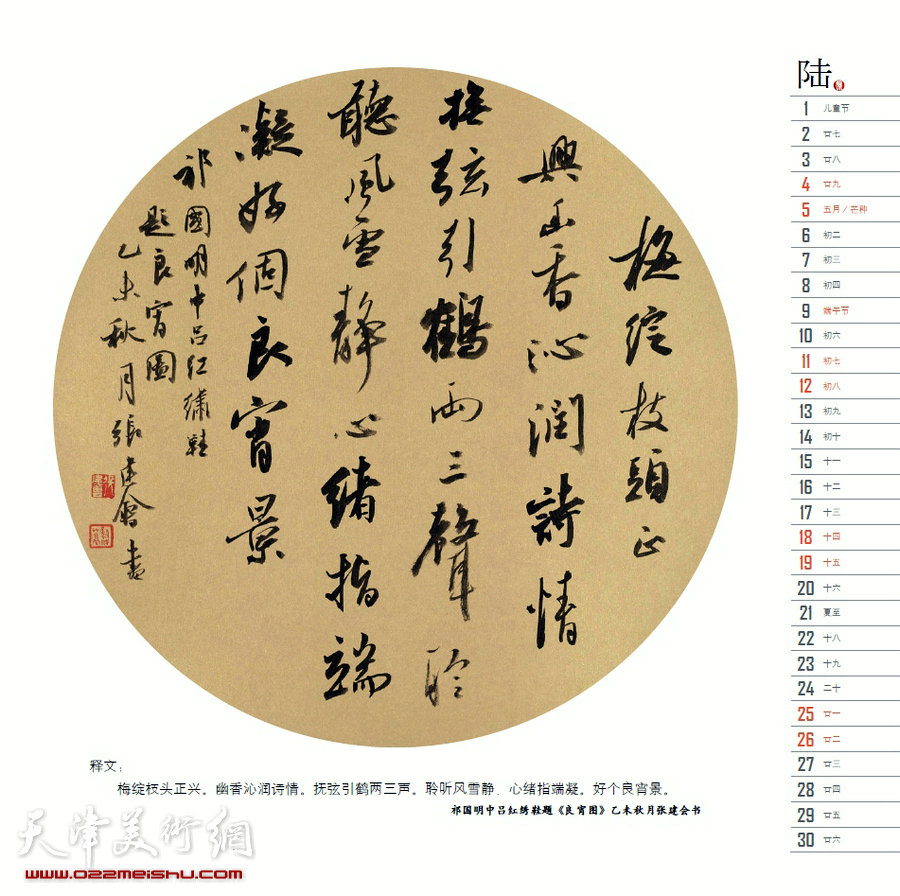 梅绽枝頭正
興幽香沁潤詩情
撫弦引鶴兩三聲聆
聽風雪靜心緒指端
凝好個良宵景
祁國明中呂紅繡鞋
題良宵圖
乙未秋月張建會書
陆
1 儿童节
2 廿七
3 廿八
4 廿九
5 五月/芒种
6 初二
7 初三
8 初四
9 端午节
10 初六
11 初七
12 初八
13 初九
14 初十
15 十一
16 十二
17 十三
18 十四
19 十五
20 十六
21 夏至
22 十八
23 十九
24 二十
25 廿一
26 廿二
27 廿三
28 廿四
29 廿五
30 廿六
释文：
梅绽枝头正兴。幽香沁润诗情。抚弦引鹤两三声。聆听风雪静、心绪指端凝。好个良宵景。
祁国明中吕红绣鞋题《良宵图》乙未秋月张建会书
天津美術網
www.022meishu.com